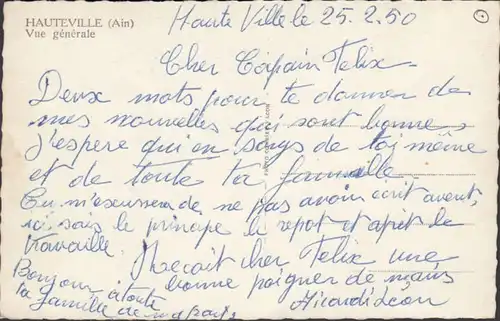 HAUTEVILLE (Ain)
Vue générale
Haute Ville le 25.2.50
Cher Copain Felix
Deux mots pour te donner de
mes nouvelles qui sont bonne
j'espere qui en soigs de toi même
et de toute ta famille.
Tu m'excuseras de ne pas avoir écrit avent,
ici sais le principe le repot et apret le
travaille. Recoit cher Felix une
bonne poigner de mains
Bonjour a toute
ta famille de ma part